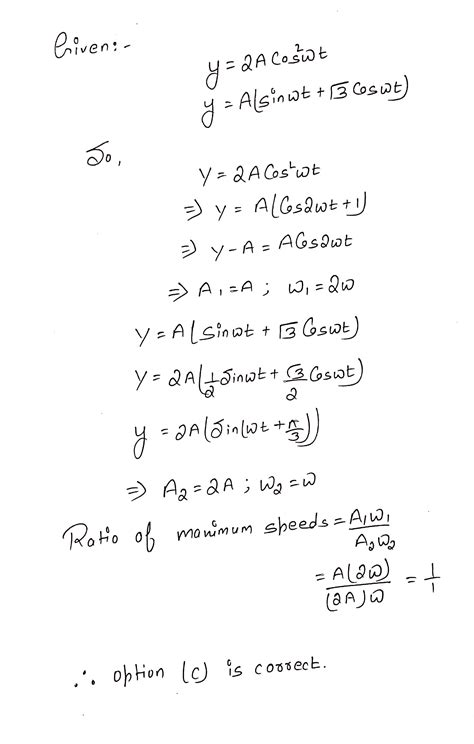 Given:-
y = 2A Cos²ωt
y = A(sinωt + √3 Cosωt)
So,
y = 2A Cos²ωt
⇒ y = A(Cos2ωt + 1)
⇒ y - A = ACos2ωt
⇒ A₁ = A ; ω₁ = 2ω
y = A(sinωt + √3 Cosωt)
y = 2A(1/2 Sinωt + √3/2 Cosωt)
y = 2A(Sin(ωt + π/3))
⇒ A₂ = 2A ; ω₂ = ω
Ratio of maximum speeds = A₁ω₁/A₂ω₂
= A(2ω)/(2A)ω = 1/1
∴ option (c) is correct.